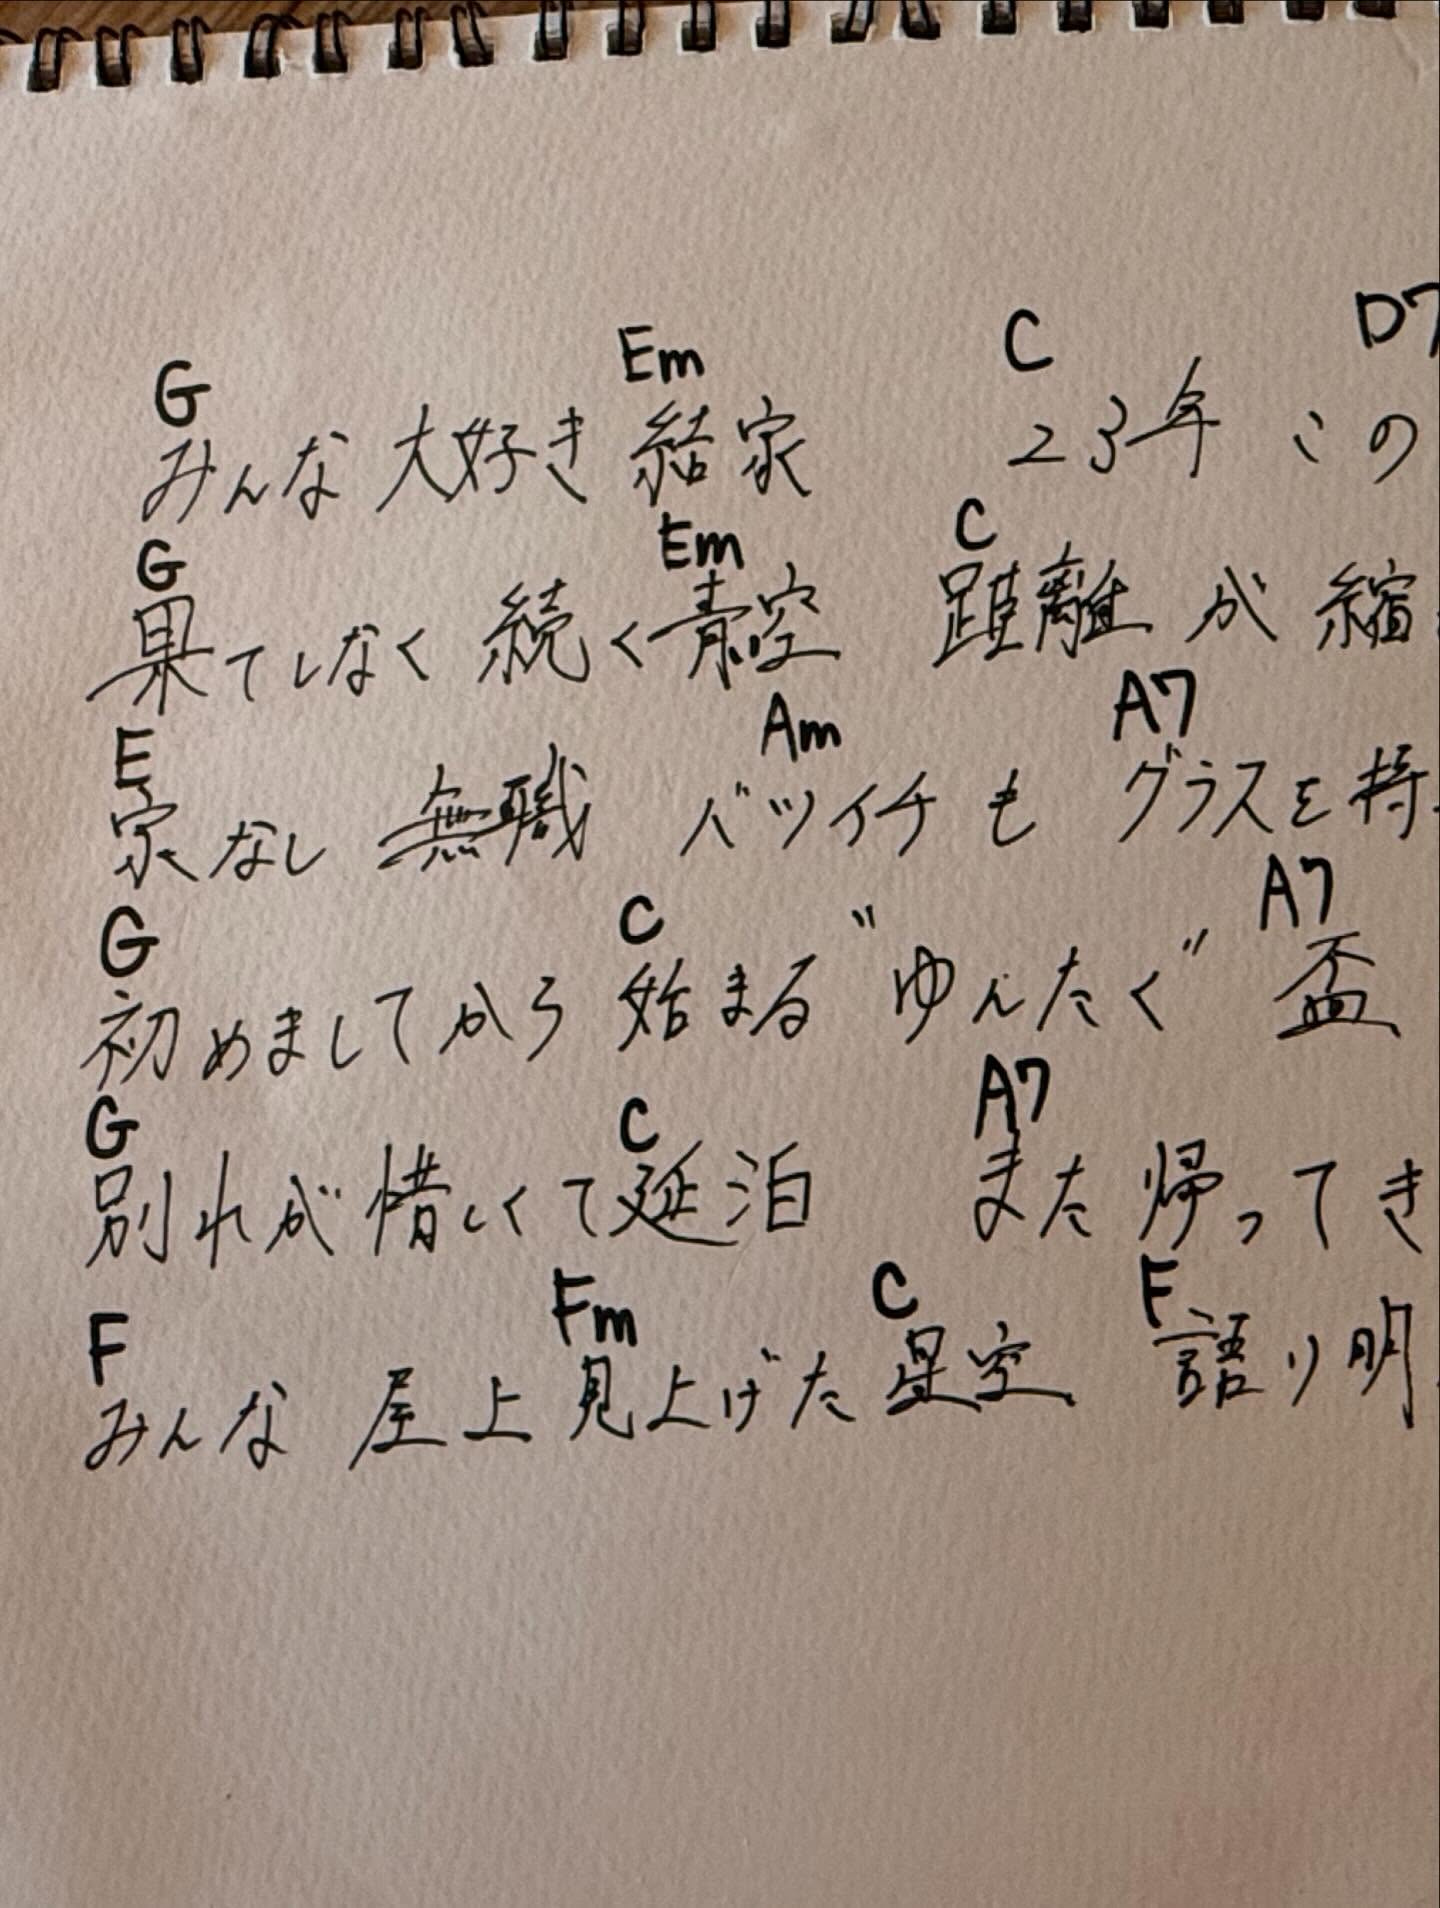 G Em C D7
みんな 大好き 結家 23年 この
G Em C
果てしなく 続く青空 距離 が 縮
E Am A7
家なし 無職 バツイチ も グラスを持
G C A7
初めましてから 始まる "ゆんたく" 盃
G C A7
別れが惜しくて延泊 また 帰ってき
F Fm C F
みんな 屋上 見上げた 星空 語り明